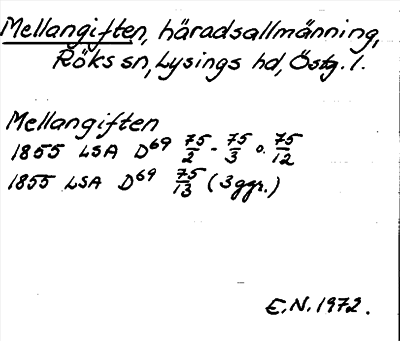 Mellangiften, häradsallmänning,
Röks sn, Lysings hd, Östg. l.
Mellangiften
1855 LSA D69 75/2 - 75/3 o. 75/12
1855 LSA D69 75/13 (3 ggr.)
E.N. 1972.